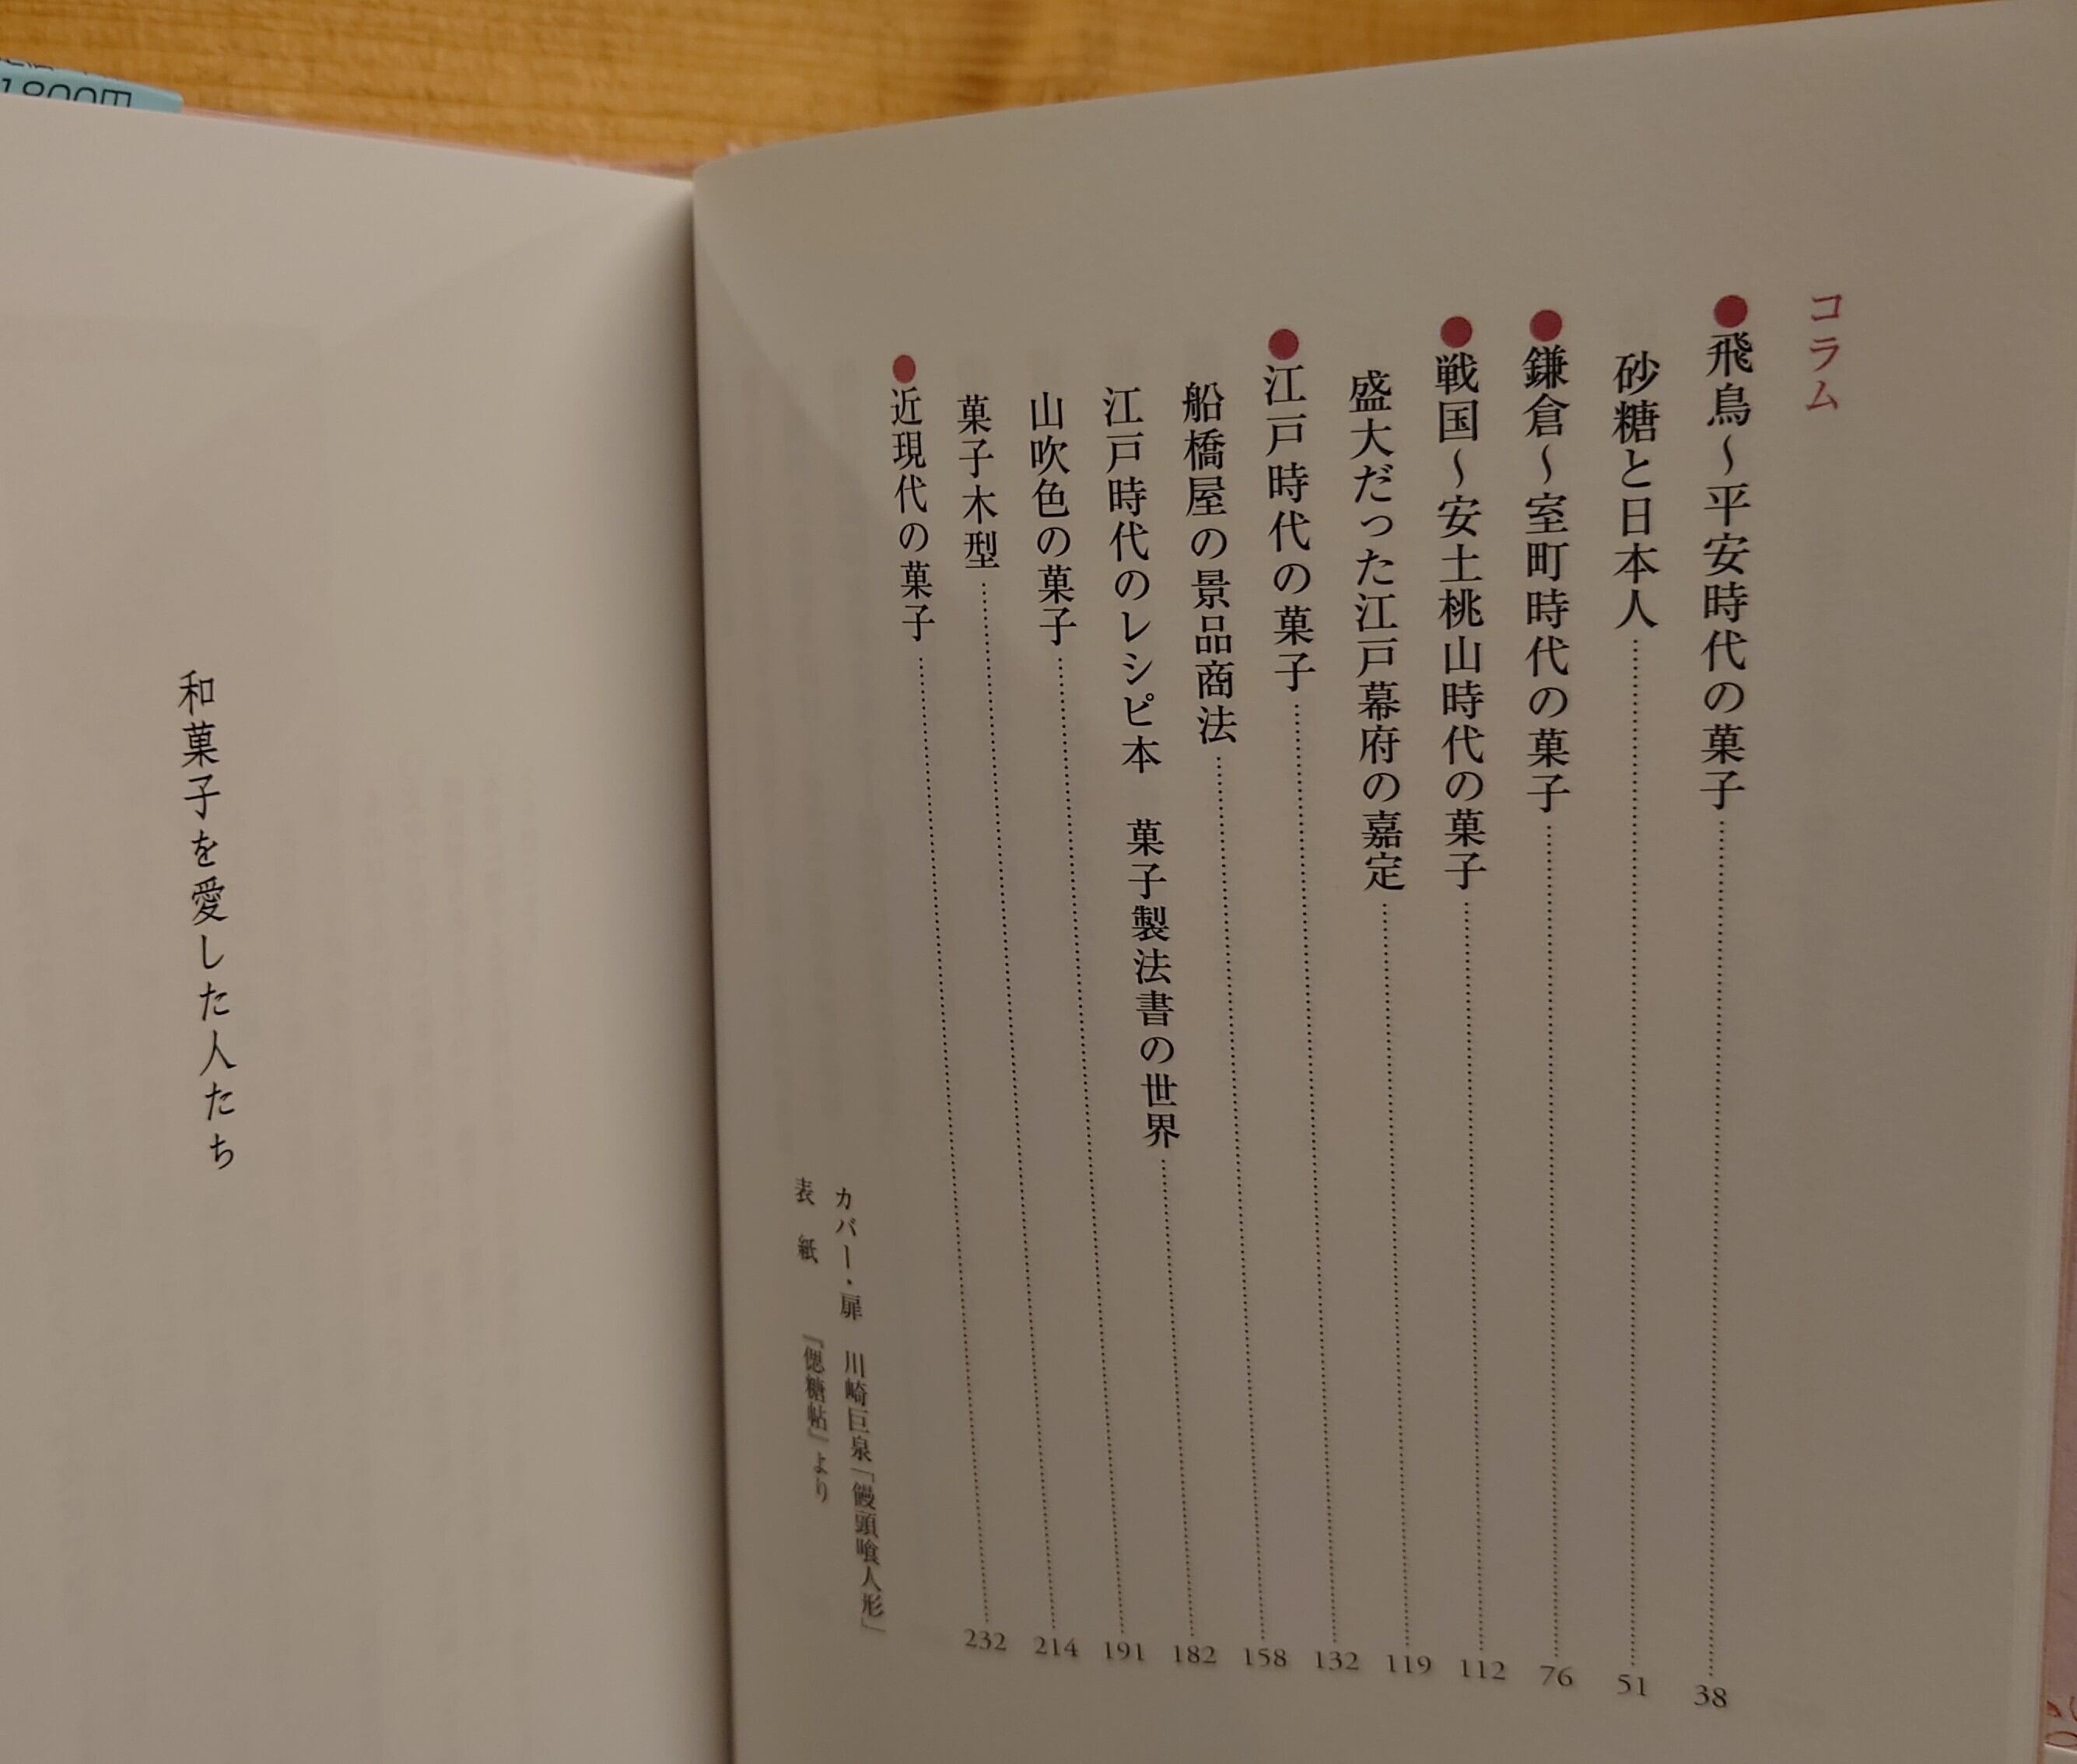 コラム
●飛鳥〜平安時代の菓子……38
砂糖と日本人……51
●鎌倉〜室町時代の菓子……76
●戦国〜安土桃山時代の菓子……112
盛大だった江戸幕府の嘉定……119
●江戸時代の菓子……132
船橋屋の景品商法……158
江戸時代のレシピ本　菓子製法書の世界……182
山吹色の菓子……191
菓子木型……214
●近現代の菓子……232
カバー・扉　川崎巨泉「饅頭喰人形」
表　紙　『偲糖帖』より
和菓子を愛した人たち
1800円